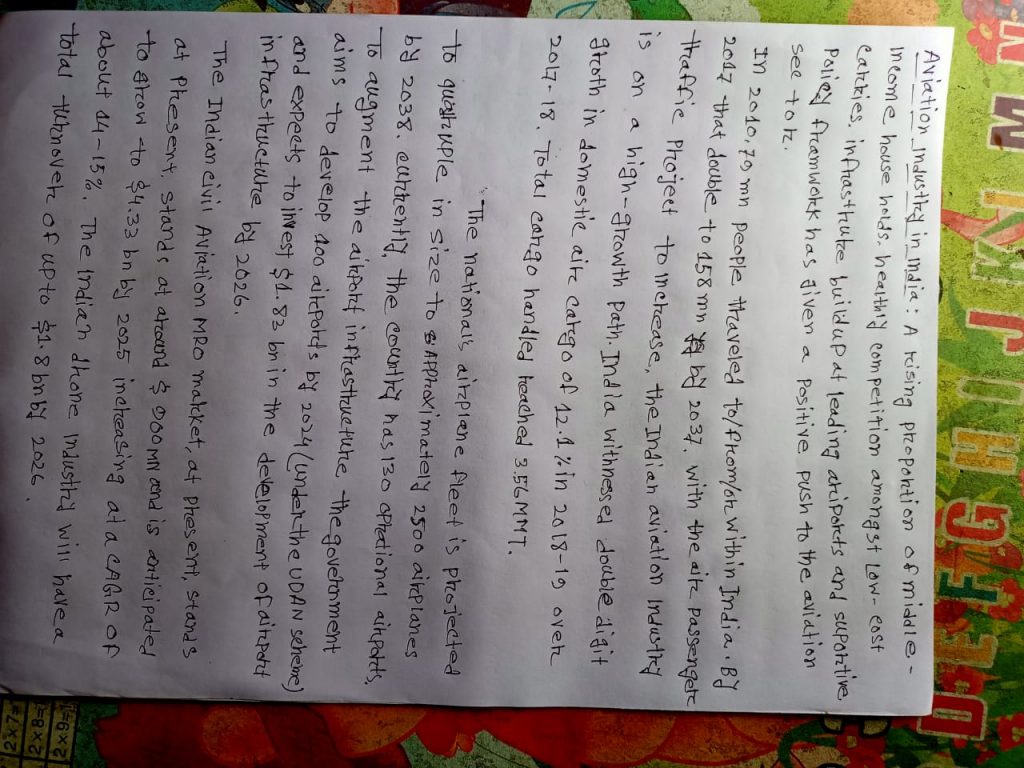 Aviation Industry in India : A rising proportion of middle-
income house holds. healthy competition amongst Low-cost
Carries. infrastrute buildup at leading aripotrs and supotritive
policy framwork has given a positive push to the aviation
see tor.
In 2010,79 mn people traveled to/from/or within India. By
2017 that double to 158 mn by 2037. with the air passenger
traffic Project to increese, the Indian aviation Industry
is on a high-growth path. India withnessed double digit
groth in domestic air cargo of 12.1% in 2018-19 over
2017-18. Total cargo handled reached 356MMT.
The national's airplane fleet is projected
to quatruple in size to Approximately 2500 airplanes
by 2038. currently, the country has 130 oprational airports,
To augment the airport infrasturture, the government
aims to develop 100 airports by 2024 (under the UDAN scheme)
and expects to invest $1.83 bn in the development of airport
infrastructure by 2026.
The Indian civil Aviation MRO market, at present, stands
at present, stands at around $ 900 MN and is anticipated
to grow to $4.33 bn by 2025 increasing at a CAGR of
about 14-15%. The Indian drone Industry will have a
total turnover of up to $1.8 bn by 2026.
D E F G H I J K L M N
2×7=
2×8=
2×9=1